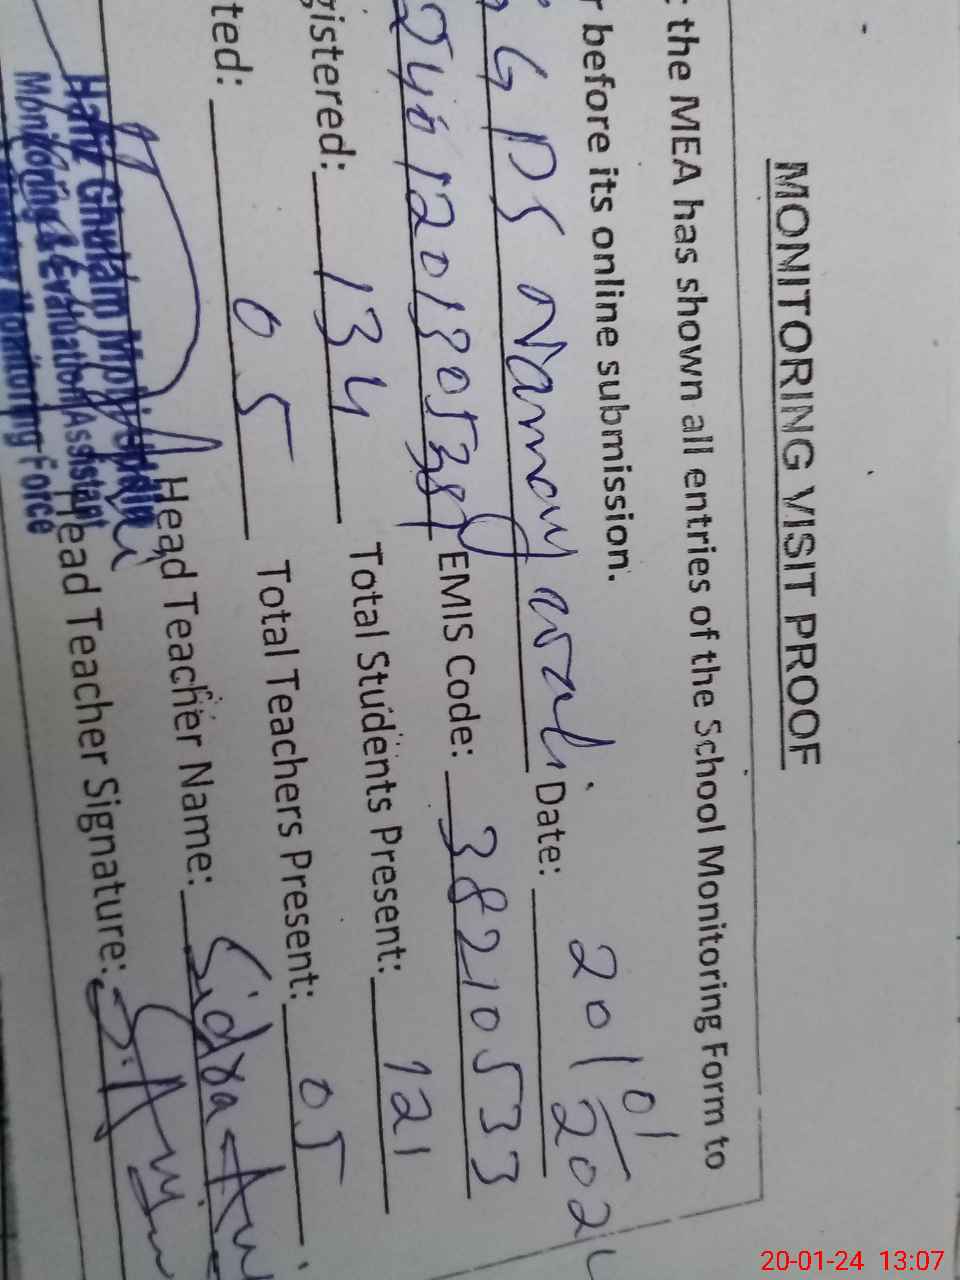 MONITORING VISIT PROOF
the MEA has shown all entries of the School Monitoring Form to
r before its online submission.
GPS Date: 20/01/202
EMIS Code: 38210533
gistered: 134 Total Students Present: 121
ted: 05 Total Teachers Present: 05
Head Teacher Name: Sidra
Head Teacher Signature:
Hafiz Ghulam
Monitoring & Evaluation Assistant
Monitoring Force
20-01-24 13:07